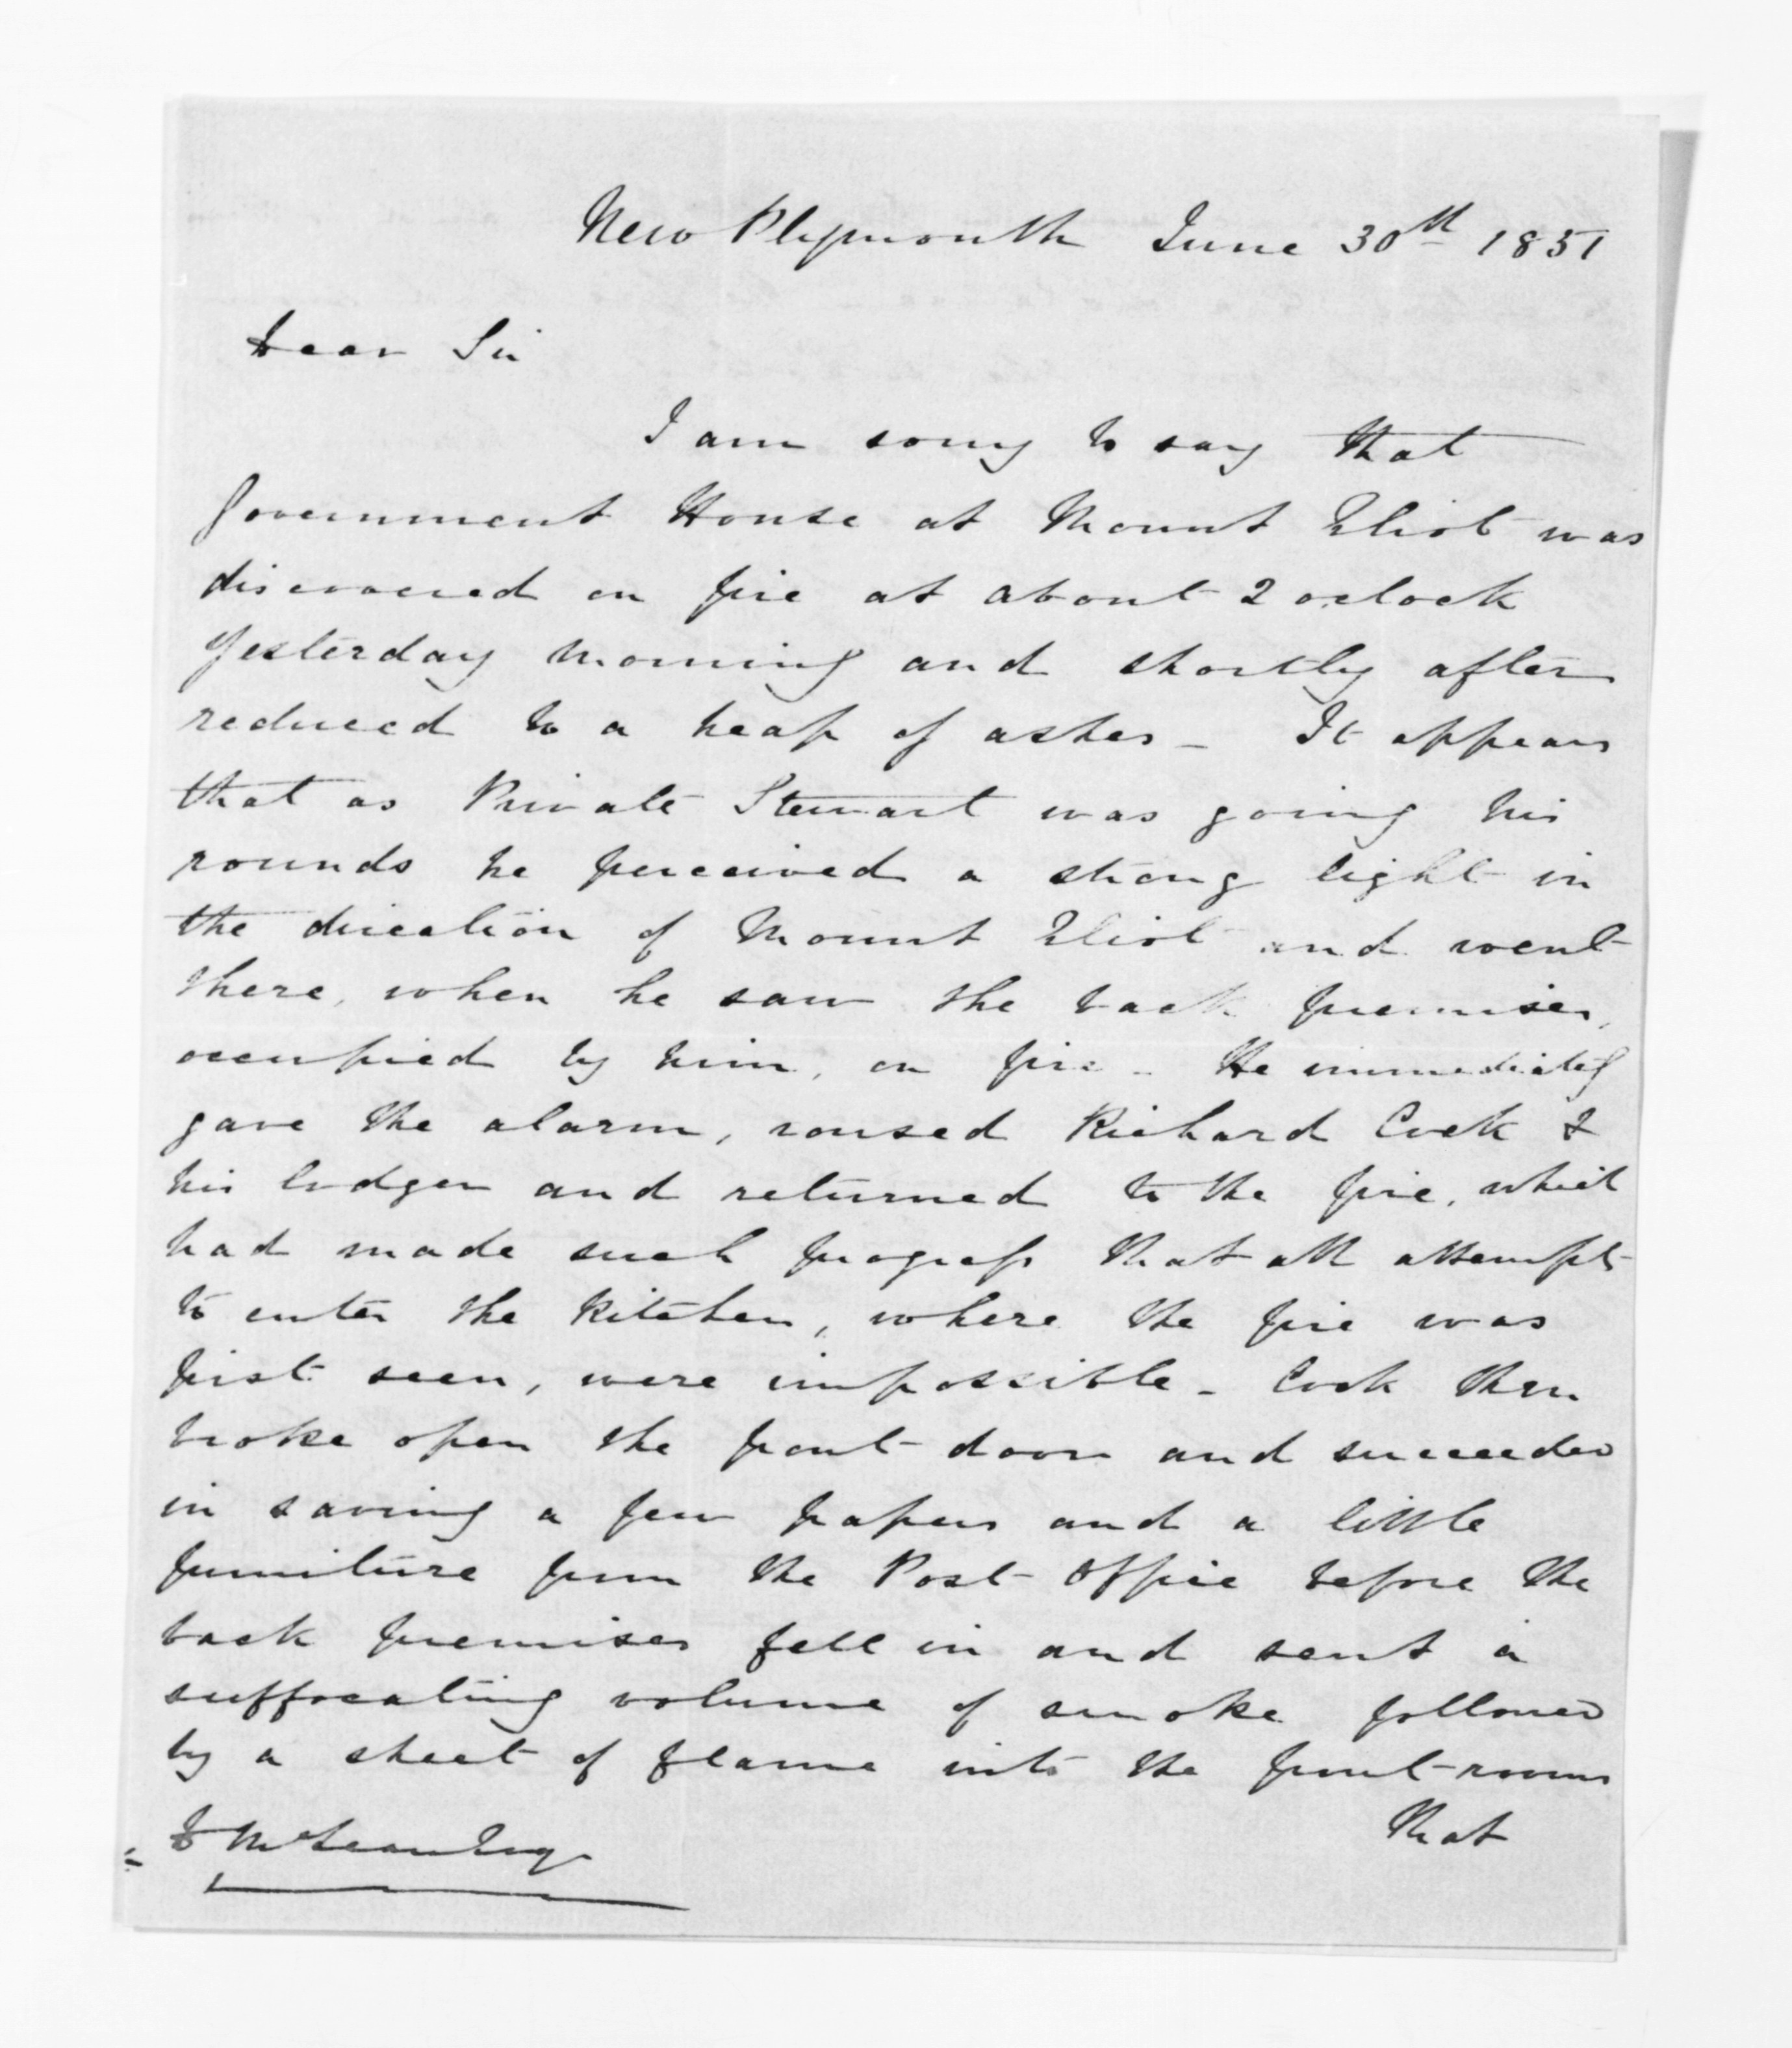 New Plymouth June 30th 1851
Dear Sir
I am sorry to say that
Government House at Mount Eliot was
discovered on fire at about 2 oclock
yesterday morning and shortly after
reduced to a heap of ashes - It appears
that as Private Stewart was going his
rounds he perceived a strong light in
the direction of Mount Eliot and went
there, when he saw the back premises,
occupied by him, on fire - He immediately
gave the alarm, roused Richard Cock &
his lodger and returned to the fire, which
had made such progress that all attempts
to enter the kitchen, where the fire was
first seen, were impossible - Cock then
broke open the front door and succeeded
in saving a few papers and a little
furniture from the Post Office before the
back premises fell in and sent a
suffocating volume of smoke followed
by a sheet of flame into the front rooms
that
D McLean Esqr